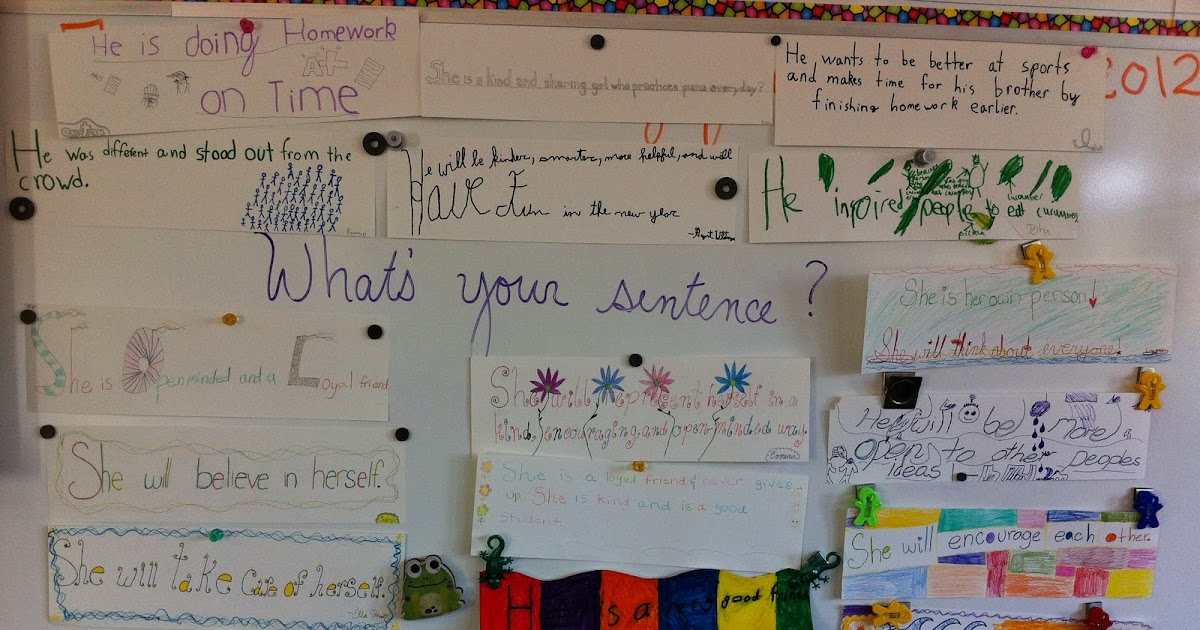 He is doing Homework
A++
on Time
She is a kind and sharing girl who practices piano everyday!
He wants to be better at sports
and makes time for his brother by
finishing homework earlier.
2012
He was different and stood out from the
crowd.
He will be kinder, smarter, more helpful, and will
Have Fun in the new year
He inpired people to eat cucumbers
cucumber
pickle
John
What's your sentence?
She is her own person!
She will think about everyone!
She is Openminded and a Loyal friend
She will represent herself in a
kind, encouraging, and open-minded way.
He will be more
open to other peoples
ideas
She will believe in herself.
She is a loyal friend & never gives
up. She is kind and is a good
student.
She will encourage each other.
She will take care of herself.
He is a very good friend